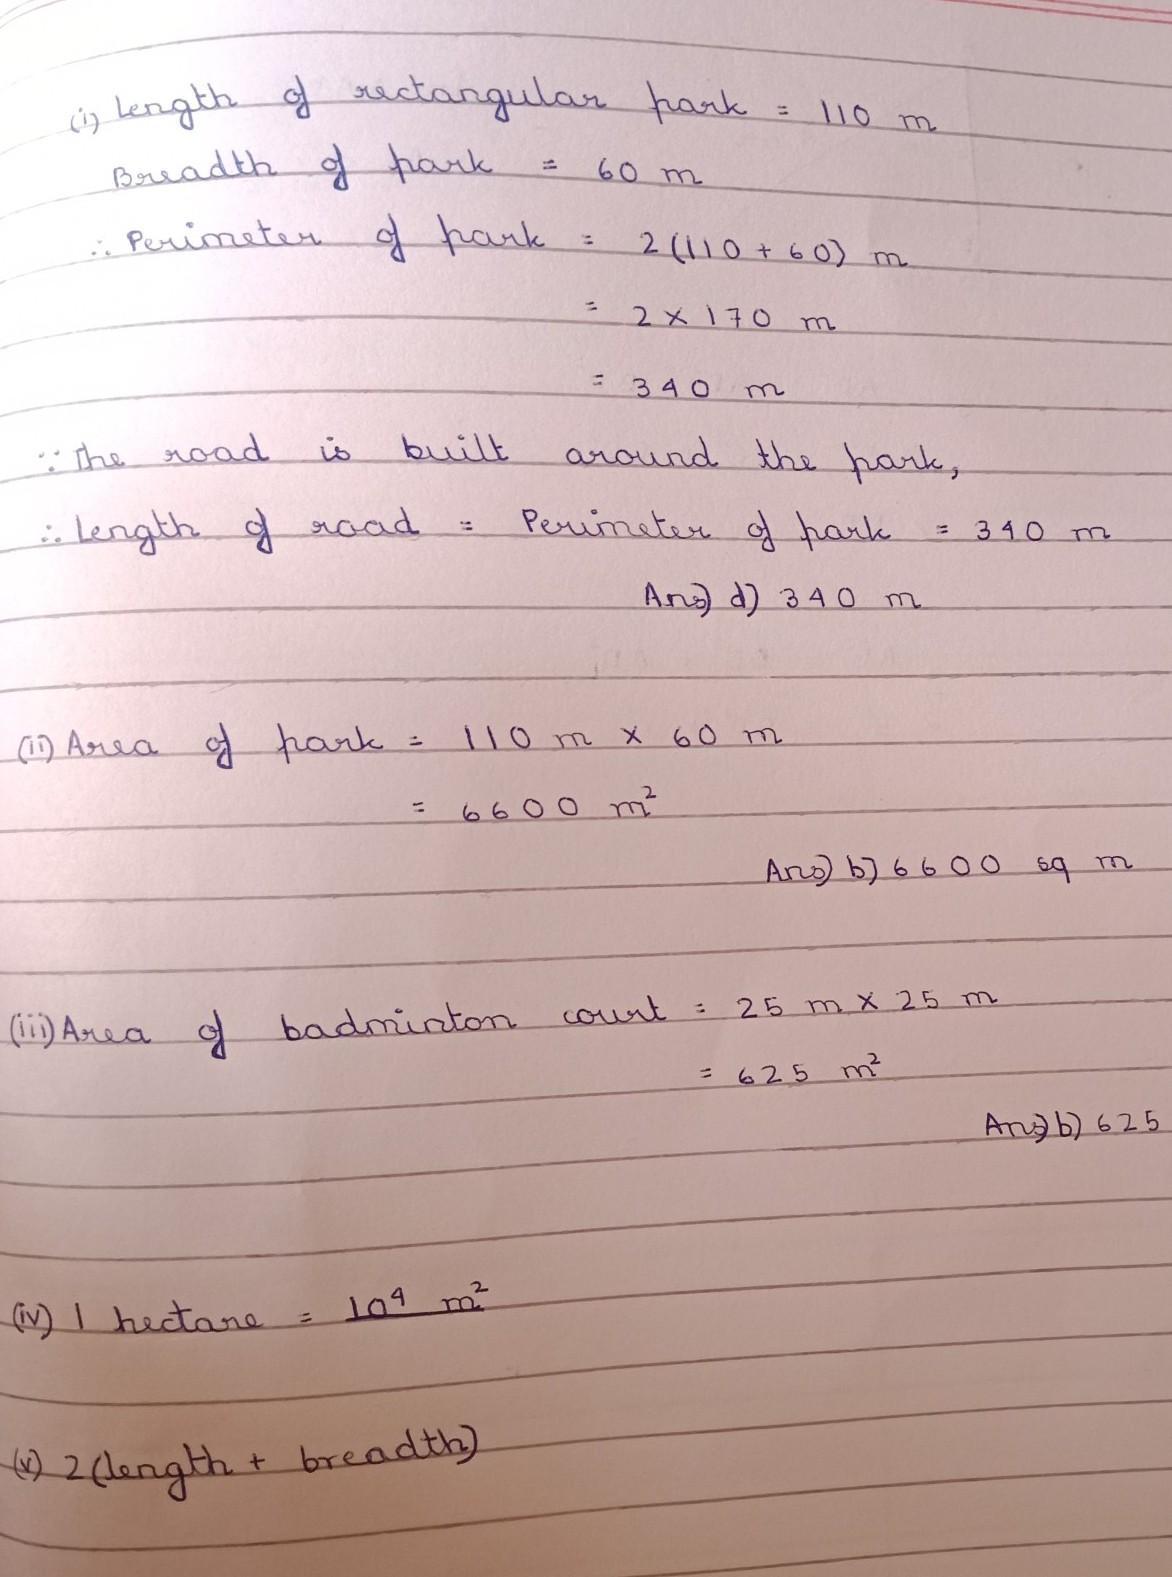 (i) Length of rectangular park = 110 m
Breadth of park = 60 m
∴ Perimeter of park = 2(110 + 60) m
= 2 × 170 m
= 340 m
∵ The road is built around the park,
∴ Length of road = Perimeter of park = 340 m
Ans) d) 340 m
(ii) Area of park = 110 m × 60 m
= 6600 m²
Ans) b) 6600 sq m
(iii) Area of badminton court = 25 m × 25 m
= 625 m²
Ans) b) 625
(iv) 1 hectare = 10⁴ m²
(v) 2(length + breadth)